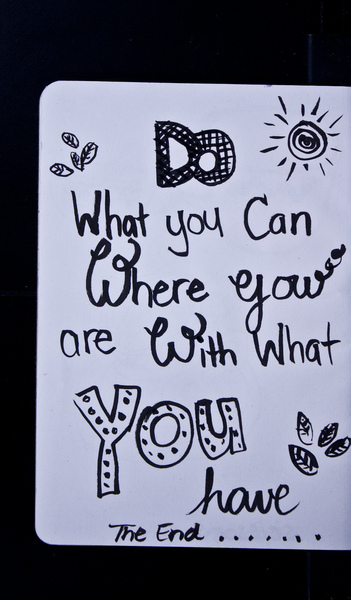 Do
What you Can
Where you
are With What
YOU
have
The End .......